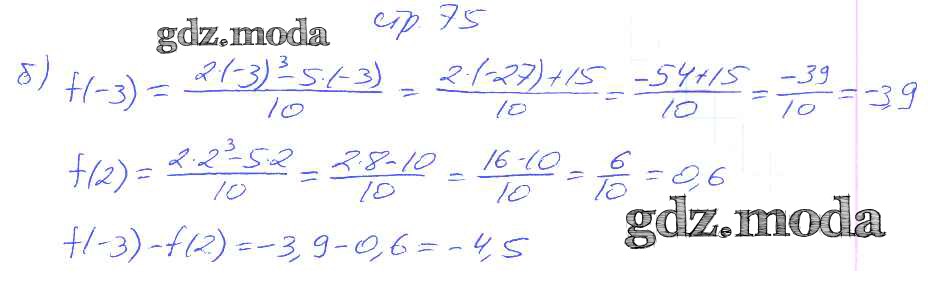 стр 75
gdz.moda
б) f(-3) = \frac{2·(-3)^3-5·(-3)}{10} = \frac{2·(-27)+15}{10} = \frac{-54+15}{10} = \frac{-39}{10} = -3,9
f(2) = \frac{2·2^3-5·2}{10} = \frac{2·8-10}{10} = \frac{16-10}{10} = \frac{6}{10} = 0,6
gdz.moda
f(-3) - f(2) = -3,9 - 0,6 = -4,5